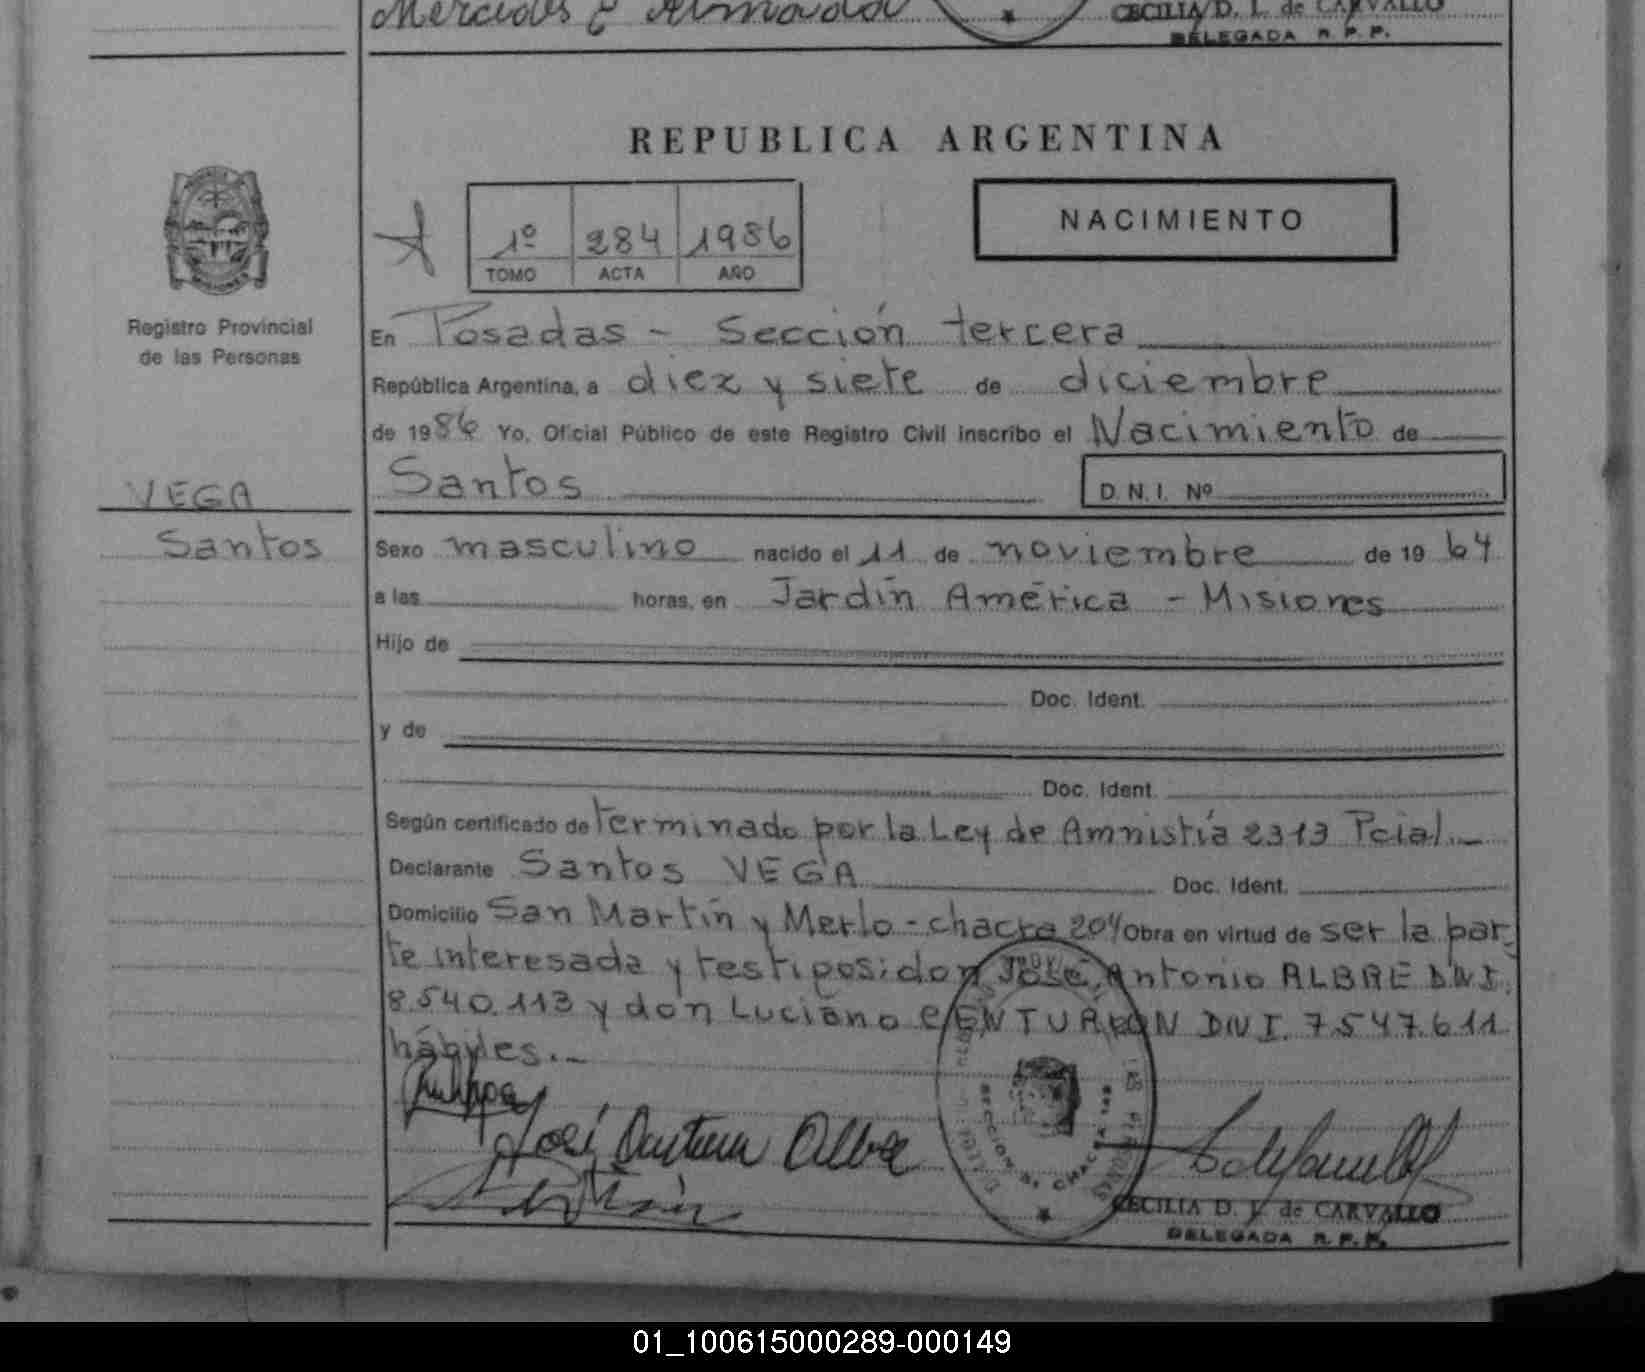 Mercedes E Almada
CECILIA D. L. de CARVALLO
DELEGADA R. P. P.
REPUBLICA ARGENTINA
1º 284 1986
TOMO ACTA AÑO
NACIMIENTO
Registro Provincial
de las Personas
En Posadas - Sección tercera
República Argentina, a diez y siete de diciembre
de 1986 Yo, Oficial Público de este Registro Civil inscribo el Nacimiento de
VEGA
Santos
Santos
D.N.I. Nº
Sexo masculino nacido el 11 de noviembre de 1964
a las horas, en Jardín América - Misiones
Hijo de
Doc. Ident.
y de
Doc. Ident.
Según certificado de terminado por la Ley de Amnistía 2313 Pcial.-
Declarante Santos VEGA Doc. Ident.
Domicilio San Martín y Merlo - chacra 204 Obra en virtud de ser la par-
te interesada y testigos: don José Antonio ALBRE DNI.
8.540.113 y don Luciano CENTURION DNI. 7.547.611
hábiles.-
José
CECILIA D. L. de CARVALLO
DELEGADA R. P. P.
01_100615000289-000149